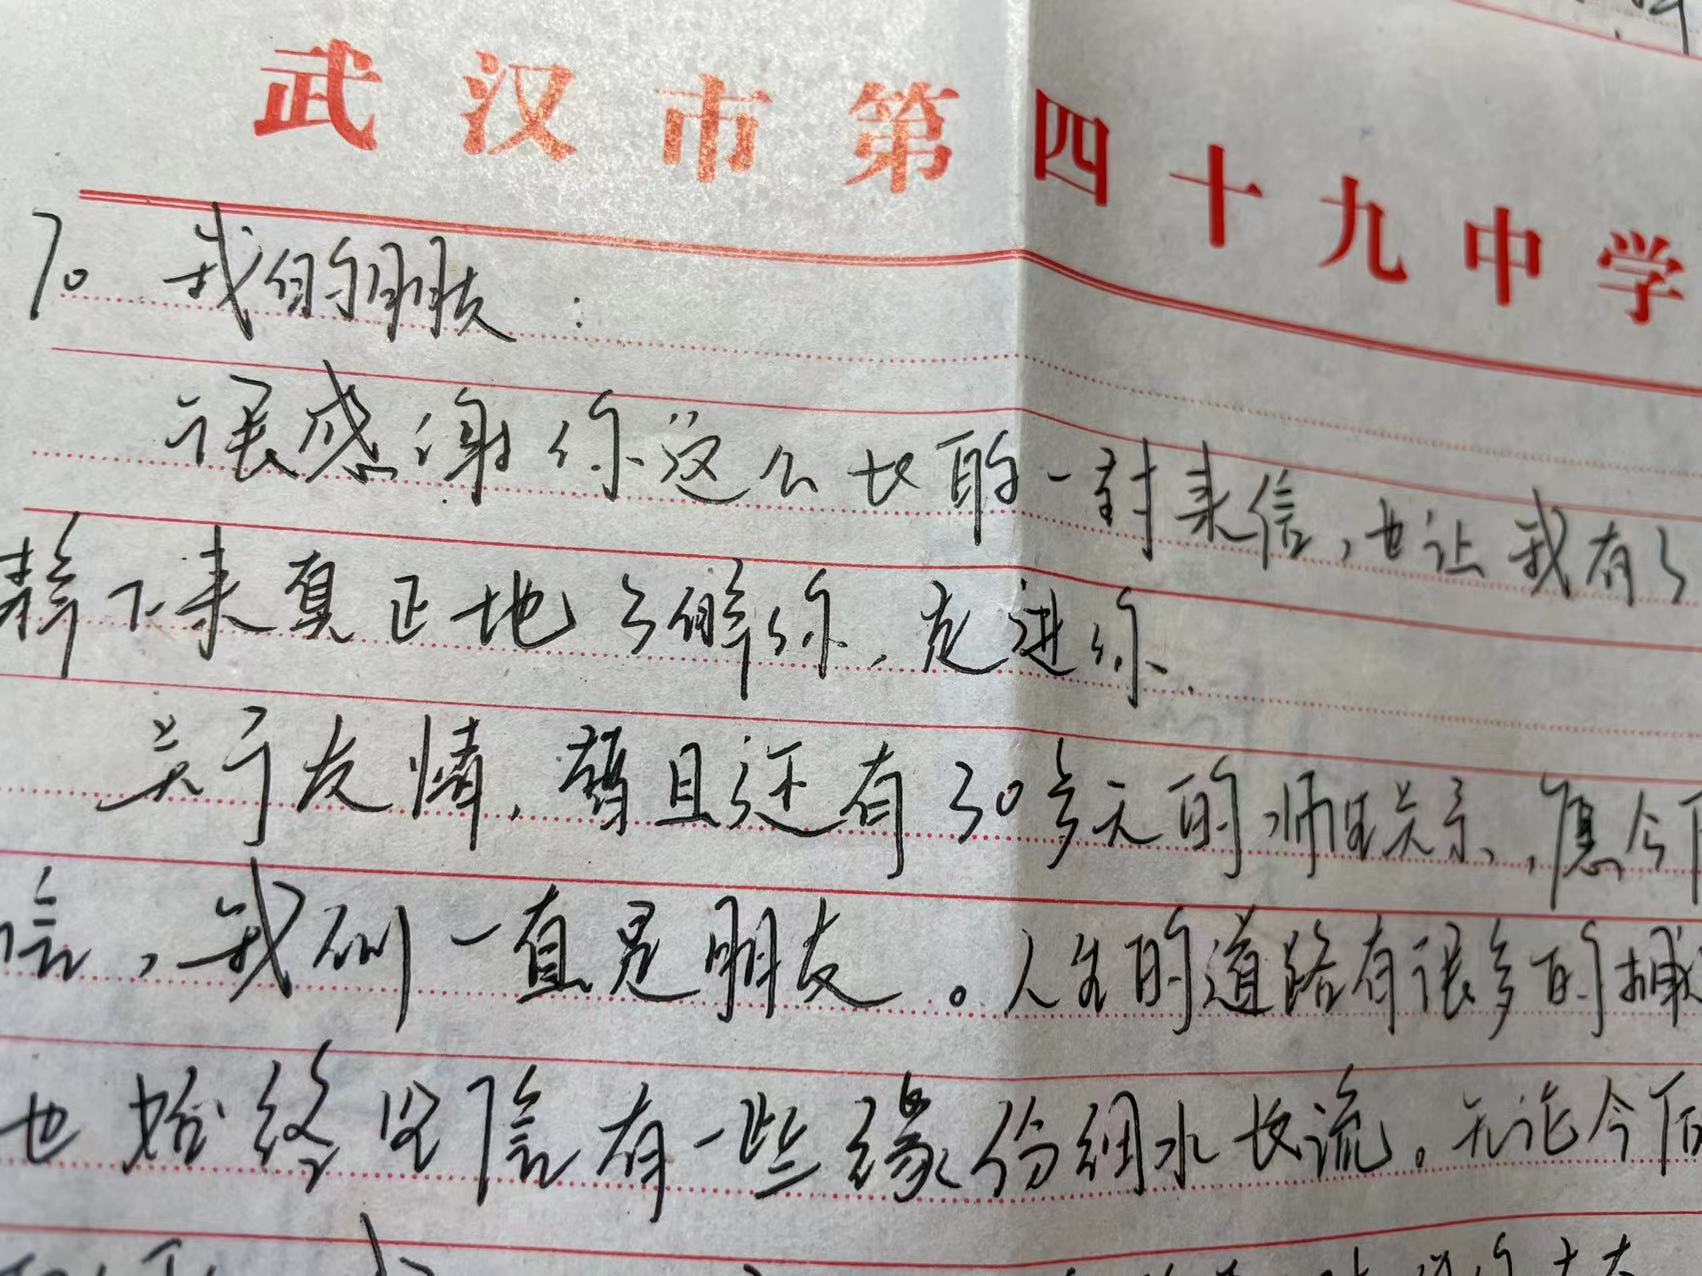 武汉市第四十九中学
7。我的朋友：
很感谢你这么长的一封来信，也让我有了
静下来真正地了解你，走进你、
关于友情，暂且还有30多天的师生关系，愿今
信，我们一直是朋友。人生的道路有很多的
也始终坚信有一些缘份细水长流。无论今后